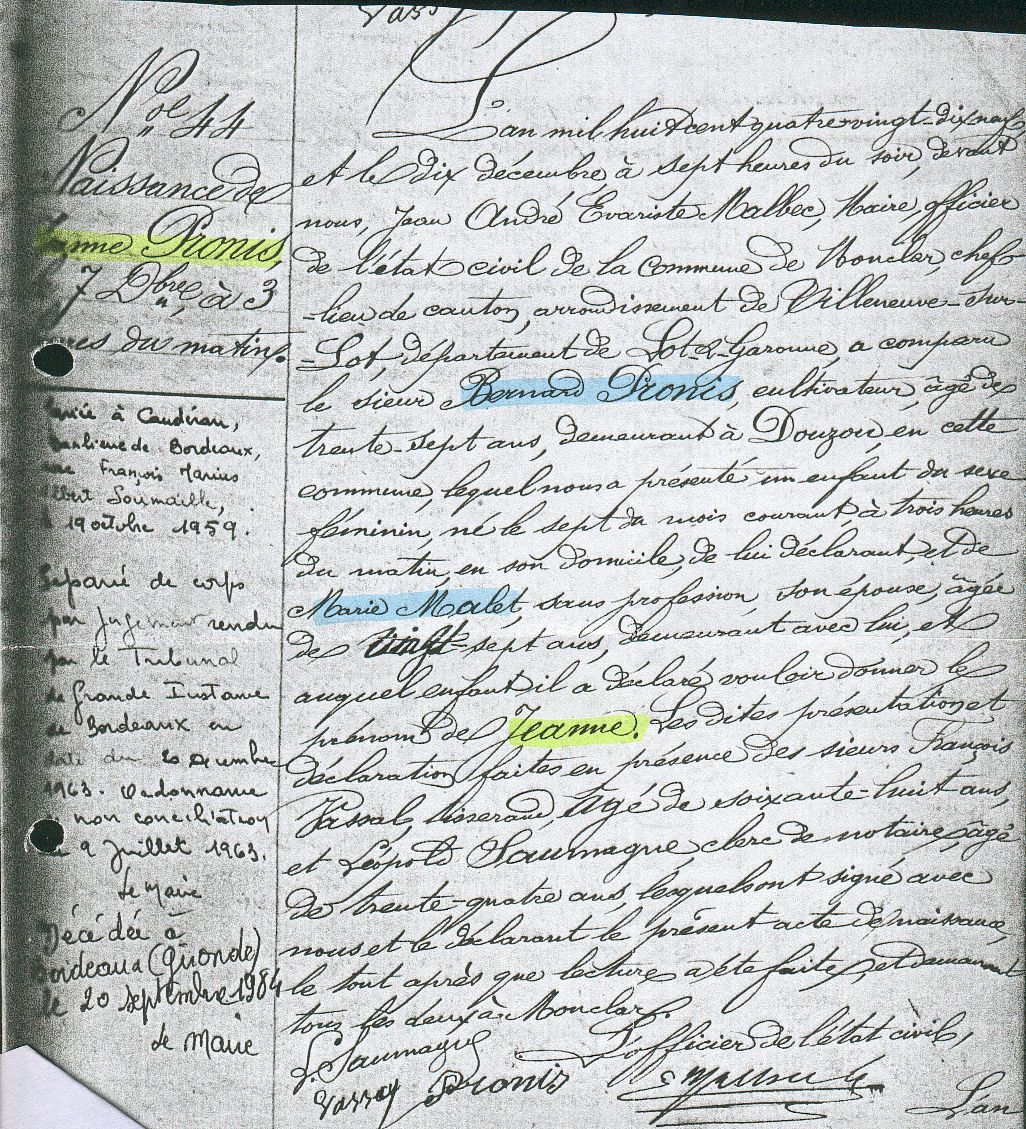 Vassal
N° 44
Naissance de
Jeanne Pionis,
le 7 Dbre, à 3
heures du matin.
Mariée à Caudéran,
banlieue de Bordeaux,
avec François Marius
Albert Soumaille,
le 19 octobre 1959.
Séparée de corps
par jugement rendu
par le Tribunal
de Grande Instance
de Bordeaux en
date du 20 décembre
1963. Ordonnance
non conciliation
du 9 Juillet 1963.
Le Maire
Décédée à
Bordeaux (Gironde)
le 20 septembre 1984
Le Maire
L'an mil huit cent quatre-vingt-dix neuf
et le dix décembre à sept heures du soir, devant
nous, Jean André Evariste Malbec, Maire, officier
de l'état civil de la commune de Monclar, chef
-lieu de canton, arrondissement de Villeneuve-sur-
-Lot, département de Lot-&-Garonne, a comparu
le sieur Bernard Pionis, cultivateur, âgé de
trente-sept ans, demeurant à Douzou, en cette
commune, lequel nous a présenté un enfant du sexe
féminin, né le sept du mois courant, à trois heures
du matin, en son domicile, de lui déclarant, et de
Marie Malet, sans profession, son épouse, âgée
de vingt-sept ans, demeurant avec lui, et
auquel enfant il a déclaré vouloir donner le
prénom de Jeanne. Les dites présentation et
déclaration faites en présence des sieurs François
Vassal, tisserand, âgé de soixante-huit ans,
et Léopold Saumagne, clerc de notaire, âgé
de trente-quatre ans, lesquels ont signé avec
nous et le déclarant le présent acte de naissance,
le tout après que lecture a été faite, et demeurant
tous les deux à Monclar.
L'officier de l'état civil,
L. Saumagne
Vassal Pionis
L'an